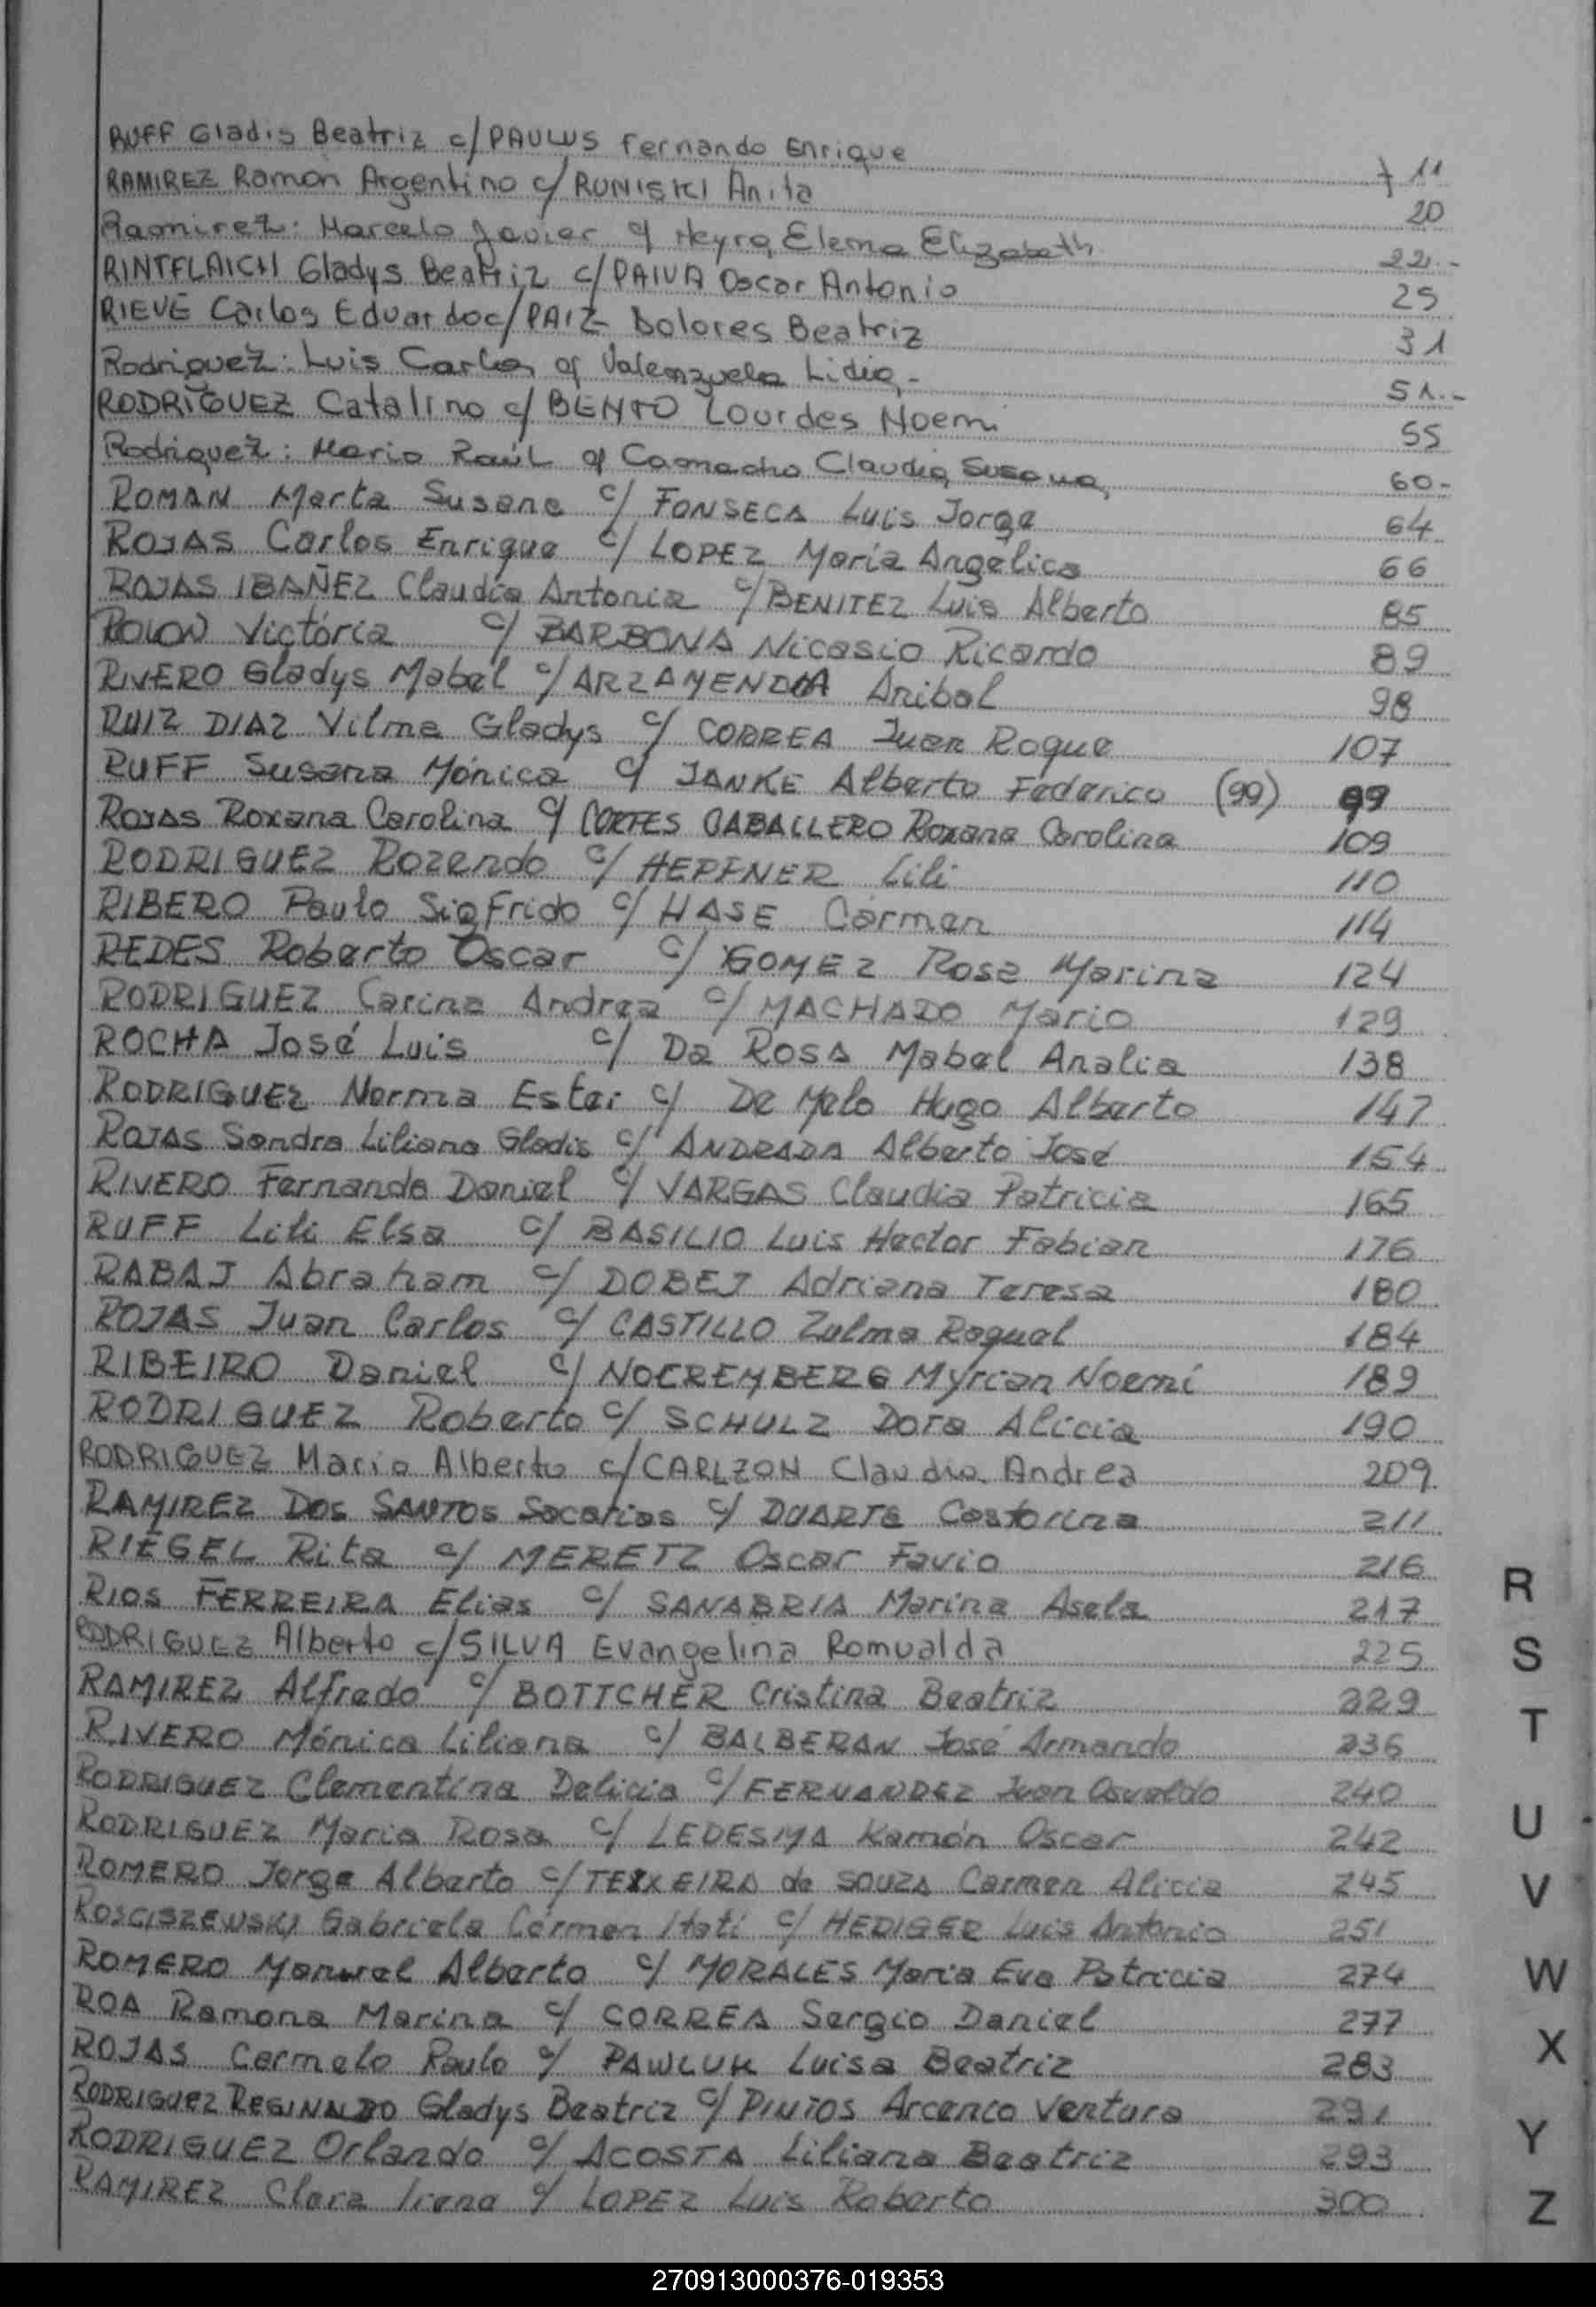 RUFF Gladis Beatriz c/ PAULUS Fernando Enrique 11
RAMIREZ Ramon Argentino c/ RUNISKI Anita 20
Ramirez: Marcelo Javier c/ Neyra, Elema Elizabeth 22.-
RINTFLAICH Gladys Beatriz c/ PAIVA Oscar Antonio 25
RIEVE Carlos Eduardo c/ PAIZ Dolores Beatriz 31
Rodriguez: Luis Carlos c/ Valenzuela Lidia.- 51.-
RODRIGUEZ Catalino c/ BENTO Lourdes Noemi 55
Rodriguez: Mario Raúl c/ Camacho Claudia Susana, 60-
ROMAN Marta Susana c/ FONSECA Luis Jorge 64
ROJAS Carlos Enrique c/ LOPEZ María Angélica 66
ROJAS IBAÑEZ Claudia Antonia c/ BENITEZ Luis Alberto 85
ROLON Victória c/ BARBONA Nicasio Ricardo 89
RIVERO Gladys Mabel c/ ARZAMENDIA Anibal 98
RUIZ DIAZ Vilma Gladys c/ CORREA Juan Roque 107
RUFF Susana Mónica c/ JANKE Alberto Federico (99) 99
ROJAS Roxana Carolina c/ CORTES CABALLERO Roxana Carolina 109
RODRIGUEZ Rozendo c/ HEPFNER Lili 110
RIBERO Paulo Sigfrido c/ HASE Carmen 114
REDES Roberto Oscar c/ GOMEZ Rosa Marina 124
RODRIGUEZ Carina Andrea c/ MACHADO Mario 129
ROCHA José Luis c/ Da ROSA Mabel Analia 138
RODRIGUEZ Norma Ester c/ De Melo Hugo Alberto 147
ROJAS Sandra Liliana Gladis c/ ANDRADA Alberto José 154
RIVERO Fernando Daniel c/ VARGAS Claudia Patricia 165
RUFF Lili Elsa c/ BASILIO Luis Hector Fabian 176
RABAJ Abraham c/ DOBEJ Adriana Teresa 180
ROJAS Juan Carlos c/ CASTILLO Zulma Raquel 184
RIBEIRO Daniel c/ NOEREMBERG Myrian Noemí 189
RODRIGUEZ Roberto c/ SCHULZ Dora Alicia 190
RODRIGUEZ Mario Alberto c/ CARLZON Claudia Andrea 209
RAMIREZ DOS SANTOS Sacarias c/ DUARTE Castorina 211
RIEGEL Rita c/ MERETZ Oscar Favio 216
RIOS FERREIRA Elias c/ SANABRIA Marina Asela 217
RODRIGUEZ Alberto c/ SILVA Evangelina Romualda 225
RAMIREZ Alfredo c/ BOTTCHER Cristina Beatriz 229
RIVERO Mónica Liliana c/ BALBERAN José Armando 236
RODRIGUEZ Clementina Delicia c/ FERNANDEZ Juan Osvaldo 240
RODRIGUEZ Maria Rosa c/ LEDESMA Ramón Oscar 242
ROMERO Jorge Alberto c/ TEIXEIRA de SOUZA Carmen Alicia 245
ROSCISZEWSKI Gabriela Cármen Itatí c/ HEDIGER Luis Antonio 251
ROMERO Manuel Alberto c/ MORALES Maria Eva Patricia 274
ROA Ramona Marina c/ CORREA Sergio Daniel 277
ROJAS Carmelo Paulo c/ PAWLUK Luisa Beatriz 283
RODRIGUEZ REGINALDO Gladys Beatriz c/ PINTOS Arcenco Ventura 291
RODRIGUEZ Orlando c/ ACOSTA Liliana Beatriz 293
RAMIREZ Clara Irena c/ LOPEZ Luis Roberto 300
R
S
T
U
V
W
X
Y
Z
270913000376-019353